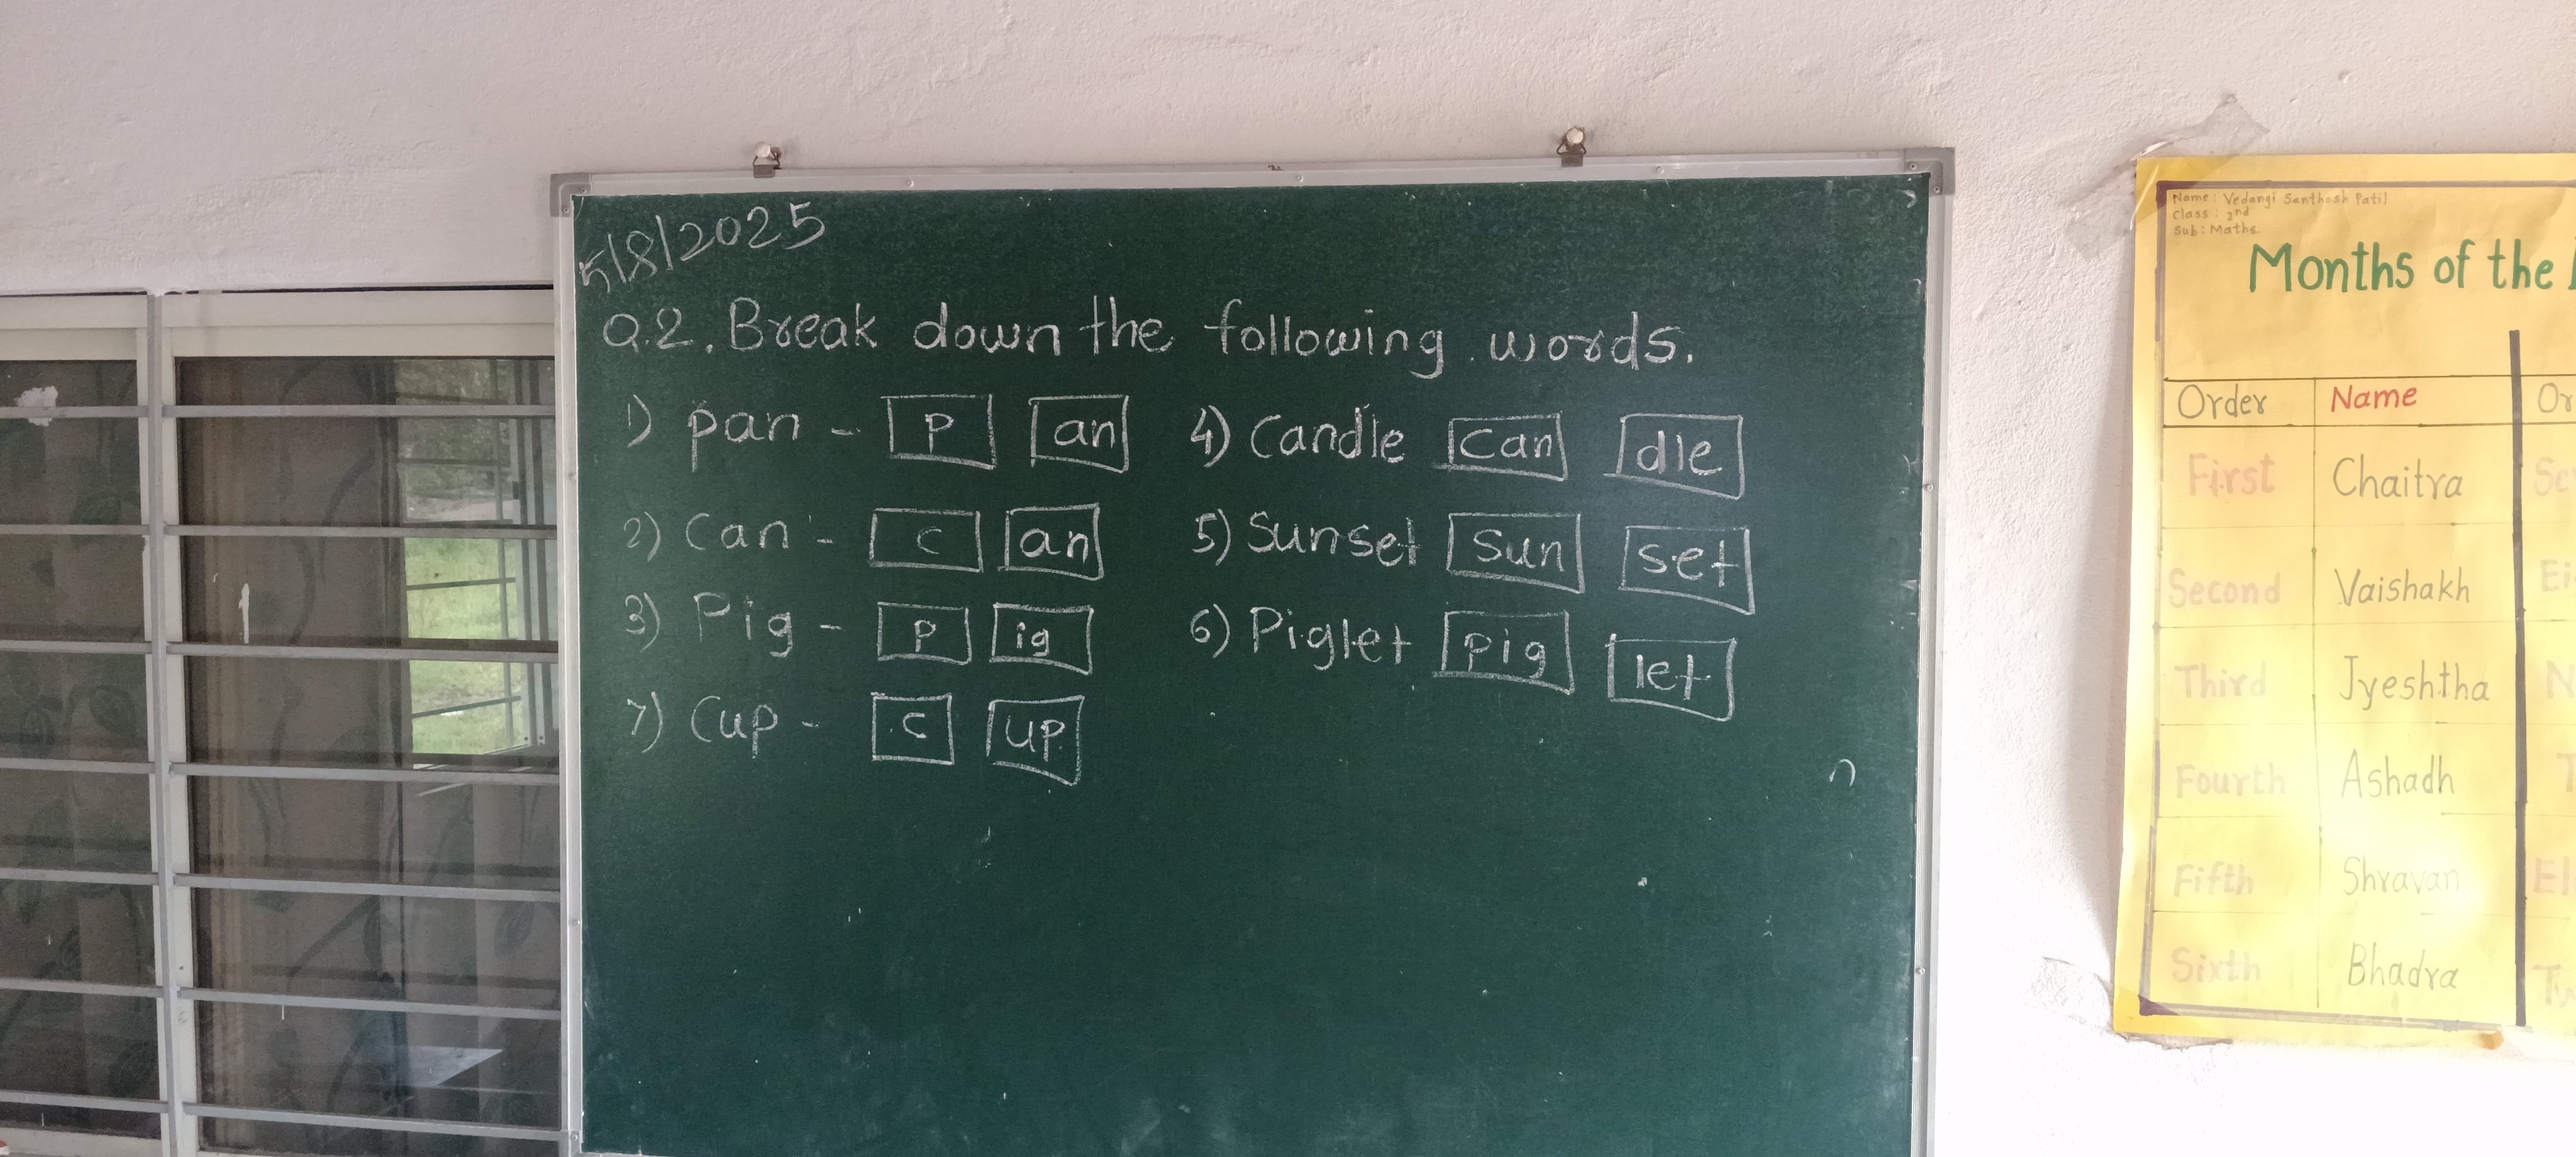 5/8/2025
Q.2. Break down the following words.
1) pan - p an
2) Can - c an
3) Pig - p ig
7) Cup - c up
4) Candle Can dle
5) Sunset Sun set
6) Piglet pig let
Name : Vedangi Santhosh Patil
Class : 2nd
Sub : Maths
Months of the
Order Name Or
First Chaitra Se
Second Vaishakh Ei
Third Jyeshtha N
Fourth Ashadh T
Fifth Shravan El
Sixth Bhadra Tw